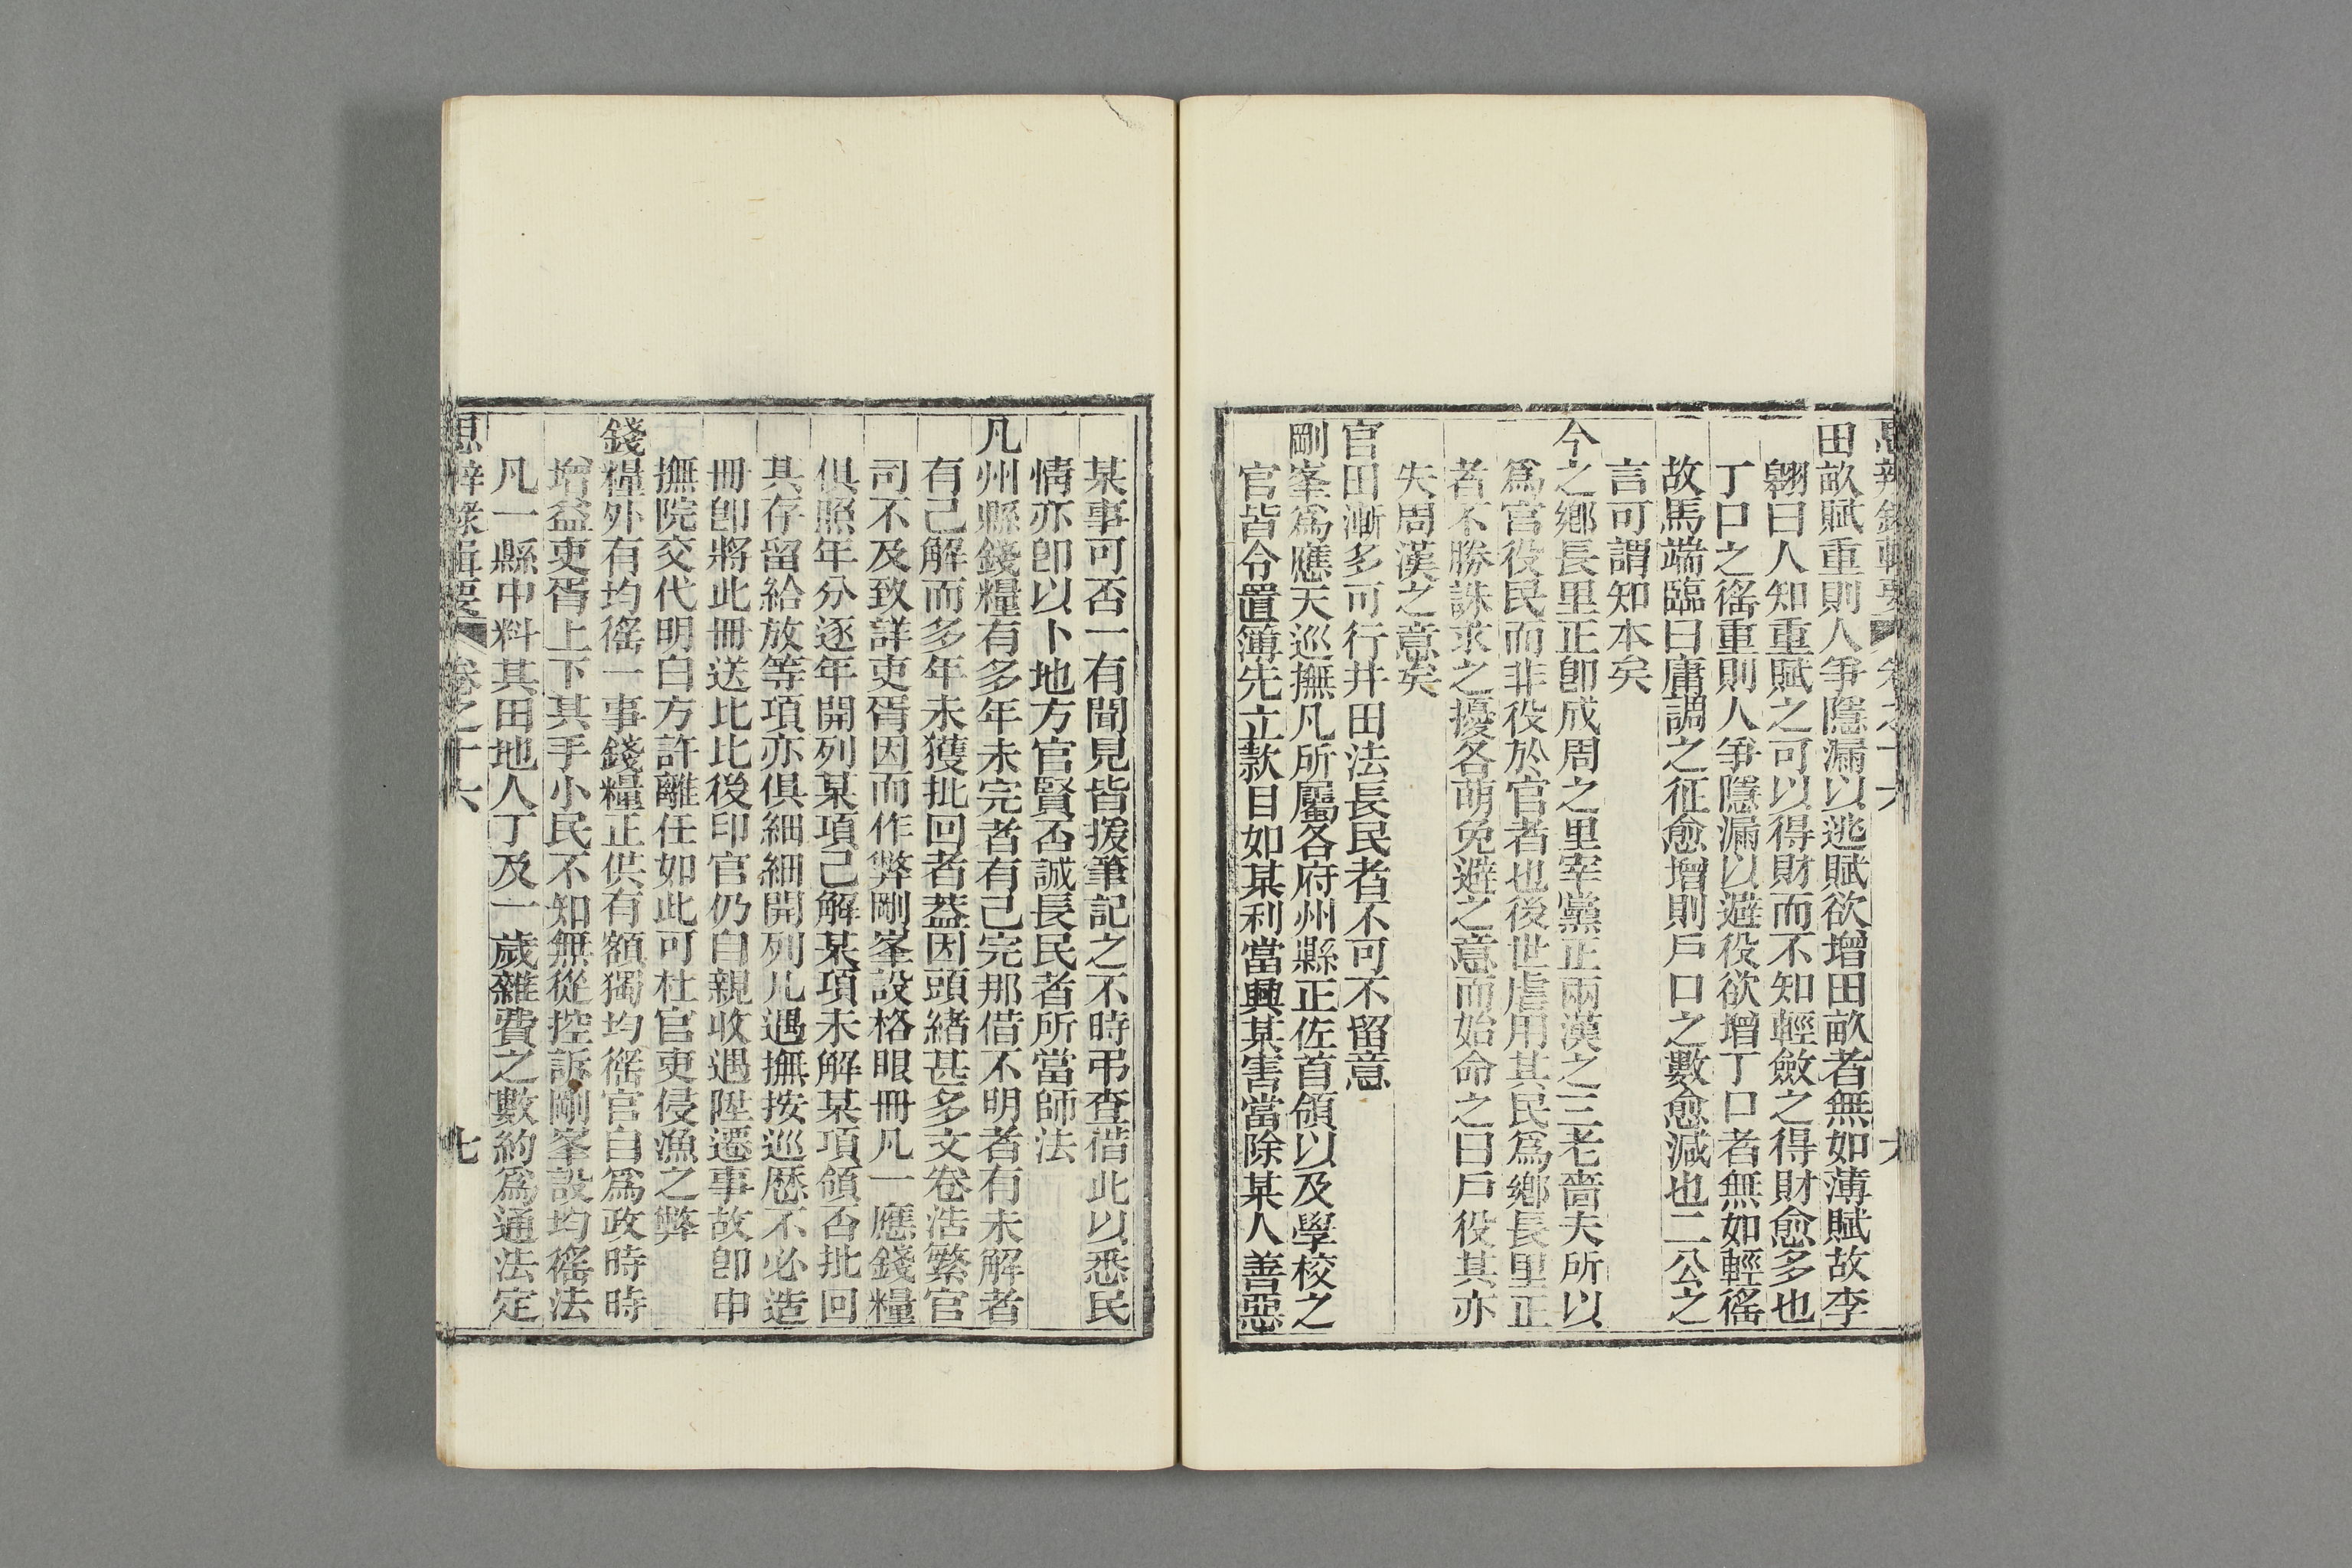 思辨錄輯要 卷之十六 六
田畝賦重則人爭隱漏以逃賦欲增田畝者無如薄賦故李
翱曰人知重賦之可以得財而不知輕斂之得財愈多也
丁口之徭重則人爭隱漏以避役欲增丁口者無如輕徭
故馬端臨曰庸調之征愈增則戶口之數愈減也二公之
言可謂知本矣
今之鄉長里正卽成周之里宰黨正兩漢之三老嗇夫所以
爲官役民而非役於官者也後世虐用其民爲鄉長里正
者不勝誅求之擾各萌免避之意而始命之曰戶役其亦
失周漢之意矣
官田漸多可行井田法長民者不可不留意
剛峯爲應天巡撫凡所屬各府州縣正佐首領以及學校之
官皆令置簿先立款目如某利當興某害當除某人善惡
某事可否一有聞見皆援筆記之不時弔查借此以悉民
情亦卽以卜地方官賢否誠長民者所當師法
凡州縣錢糧有多年未完者有已完那借不明者有未解者
有已解而多年未獲批回者葢因頭緒甚多文卷浩繁官
司不及致詳吏胥因而作弊剛峯設格眼冊凡一應錢糧
俱照年分逐年開列某項已解某項未解某項領否批回
其存留給放等項亦俱細細開列凡遇撫按巡歷不必造
冊卽將此冊送比比後印官仍自親收遇陞遷事故卽申
撫院交代明白方許離任如此可杜官吏侵漁之弊
錢糧外有均徭一事錢糧正供有額獨均徭官自爲政時時
增益吏胥上下其手小民不知無從控訴剛峯設均徭法
凡一縣中料其田地人丁及一歲雜費之數約爲通法定
思辨錄輯要 卷之十六 七